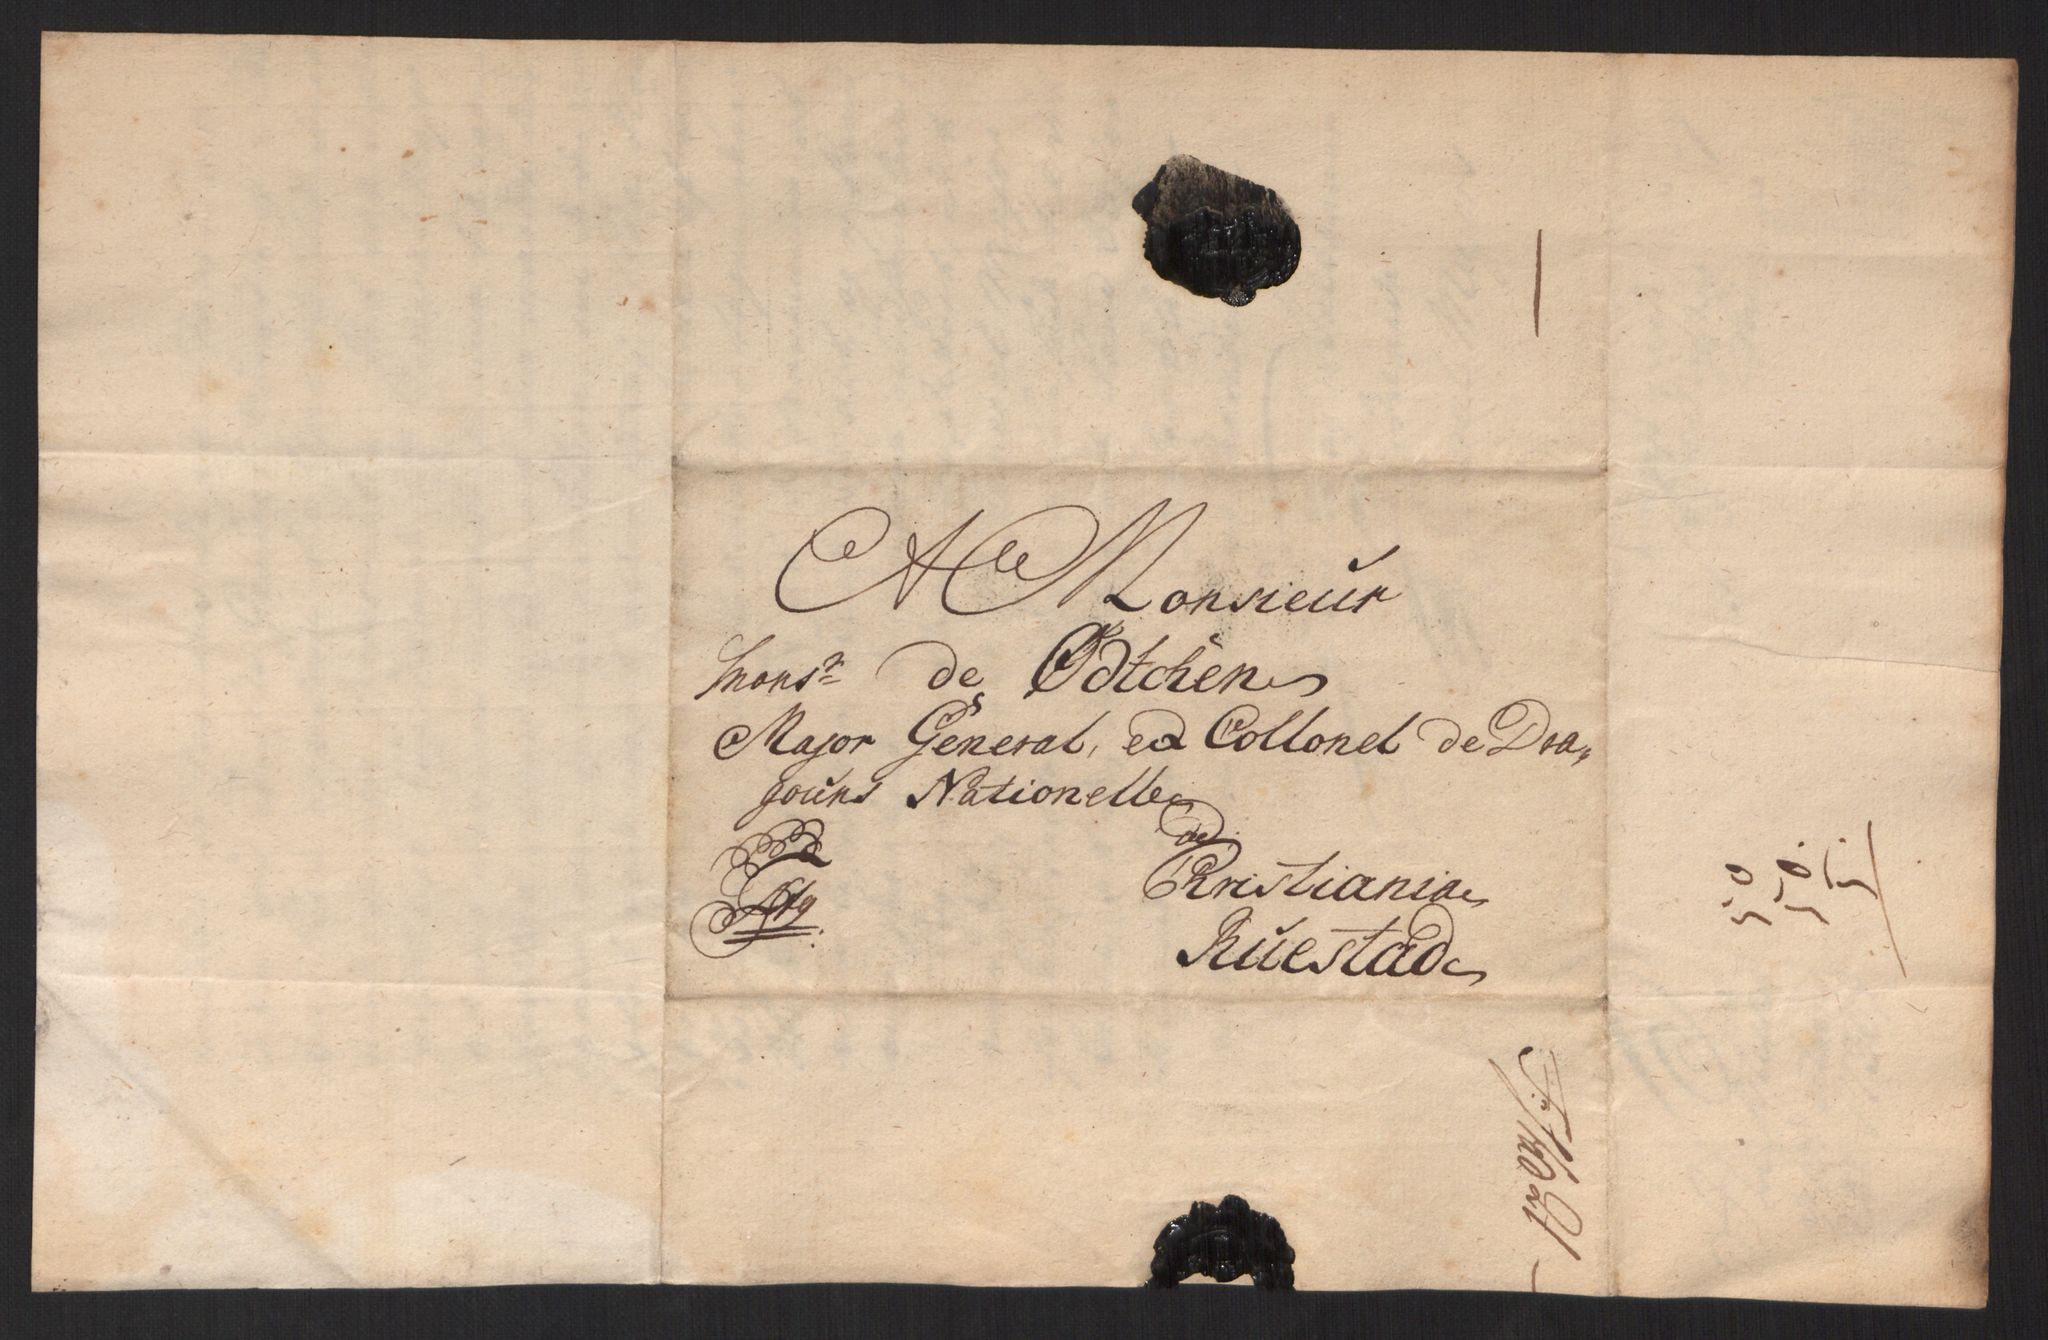 A Monsieur
Mons.r de Ødtchen
Major General, ed Collonel de Dra,,
gouns Nationelle
de
Kristiania
Rüestad